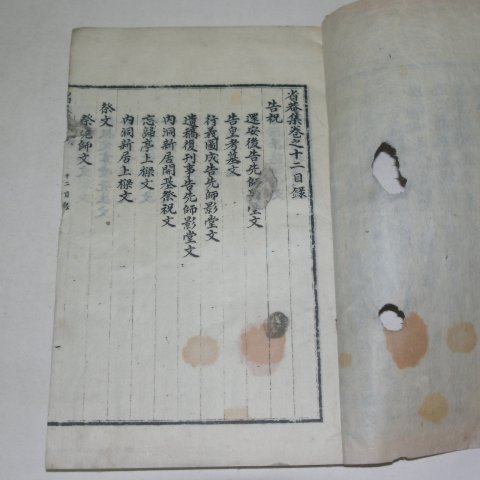 省菴集卷之十二目錄
告祝
還安後告先師影堂文
告皇考墓文
行義國成告先師影堂文
遺稿復刊事告先師影堂文
內洞新居開基祭祝文
忘歸亭上樑文
內洞新居上樑文
祭文
祭先師文
十二目錄